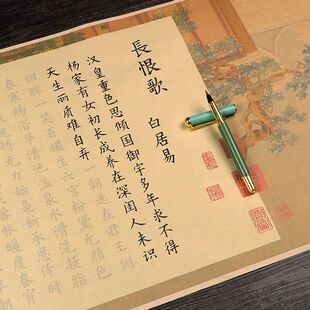 長恨歌
白居易
汉皇重色思倾国御宇多年求不得
杨家有女初长成养在深闺人未识
天生丽质难自弃一朝选在君王侧
回眸一笑百媚生六宫粉黛无颜色
春寒赐浴华清池温泉水滑洗凝脂
娇无力始是新承恩泽时
暖度春宵